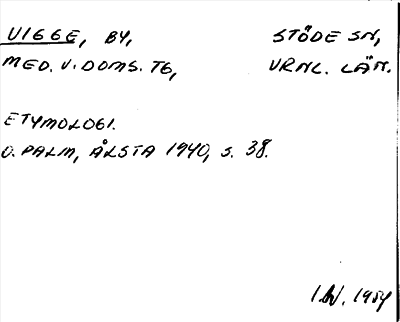 VIGGE, BY, STÖDE SN,
MED. V. DOMS. TG, VRNL. LÄN.
ETYMOLOGI.
O. PALM, ÅLSTA 1940, S. 38.
1954